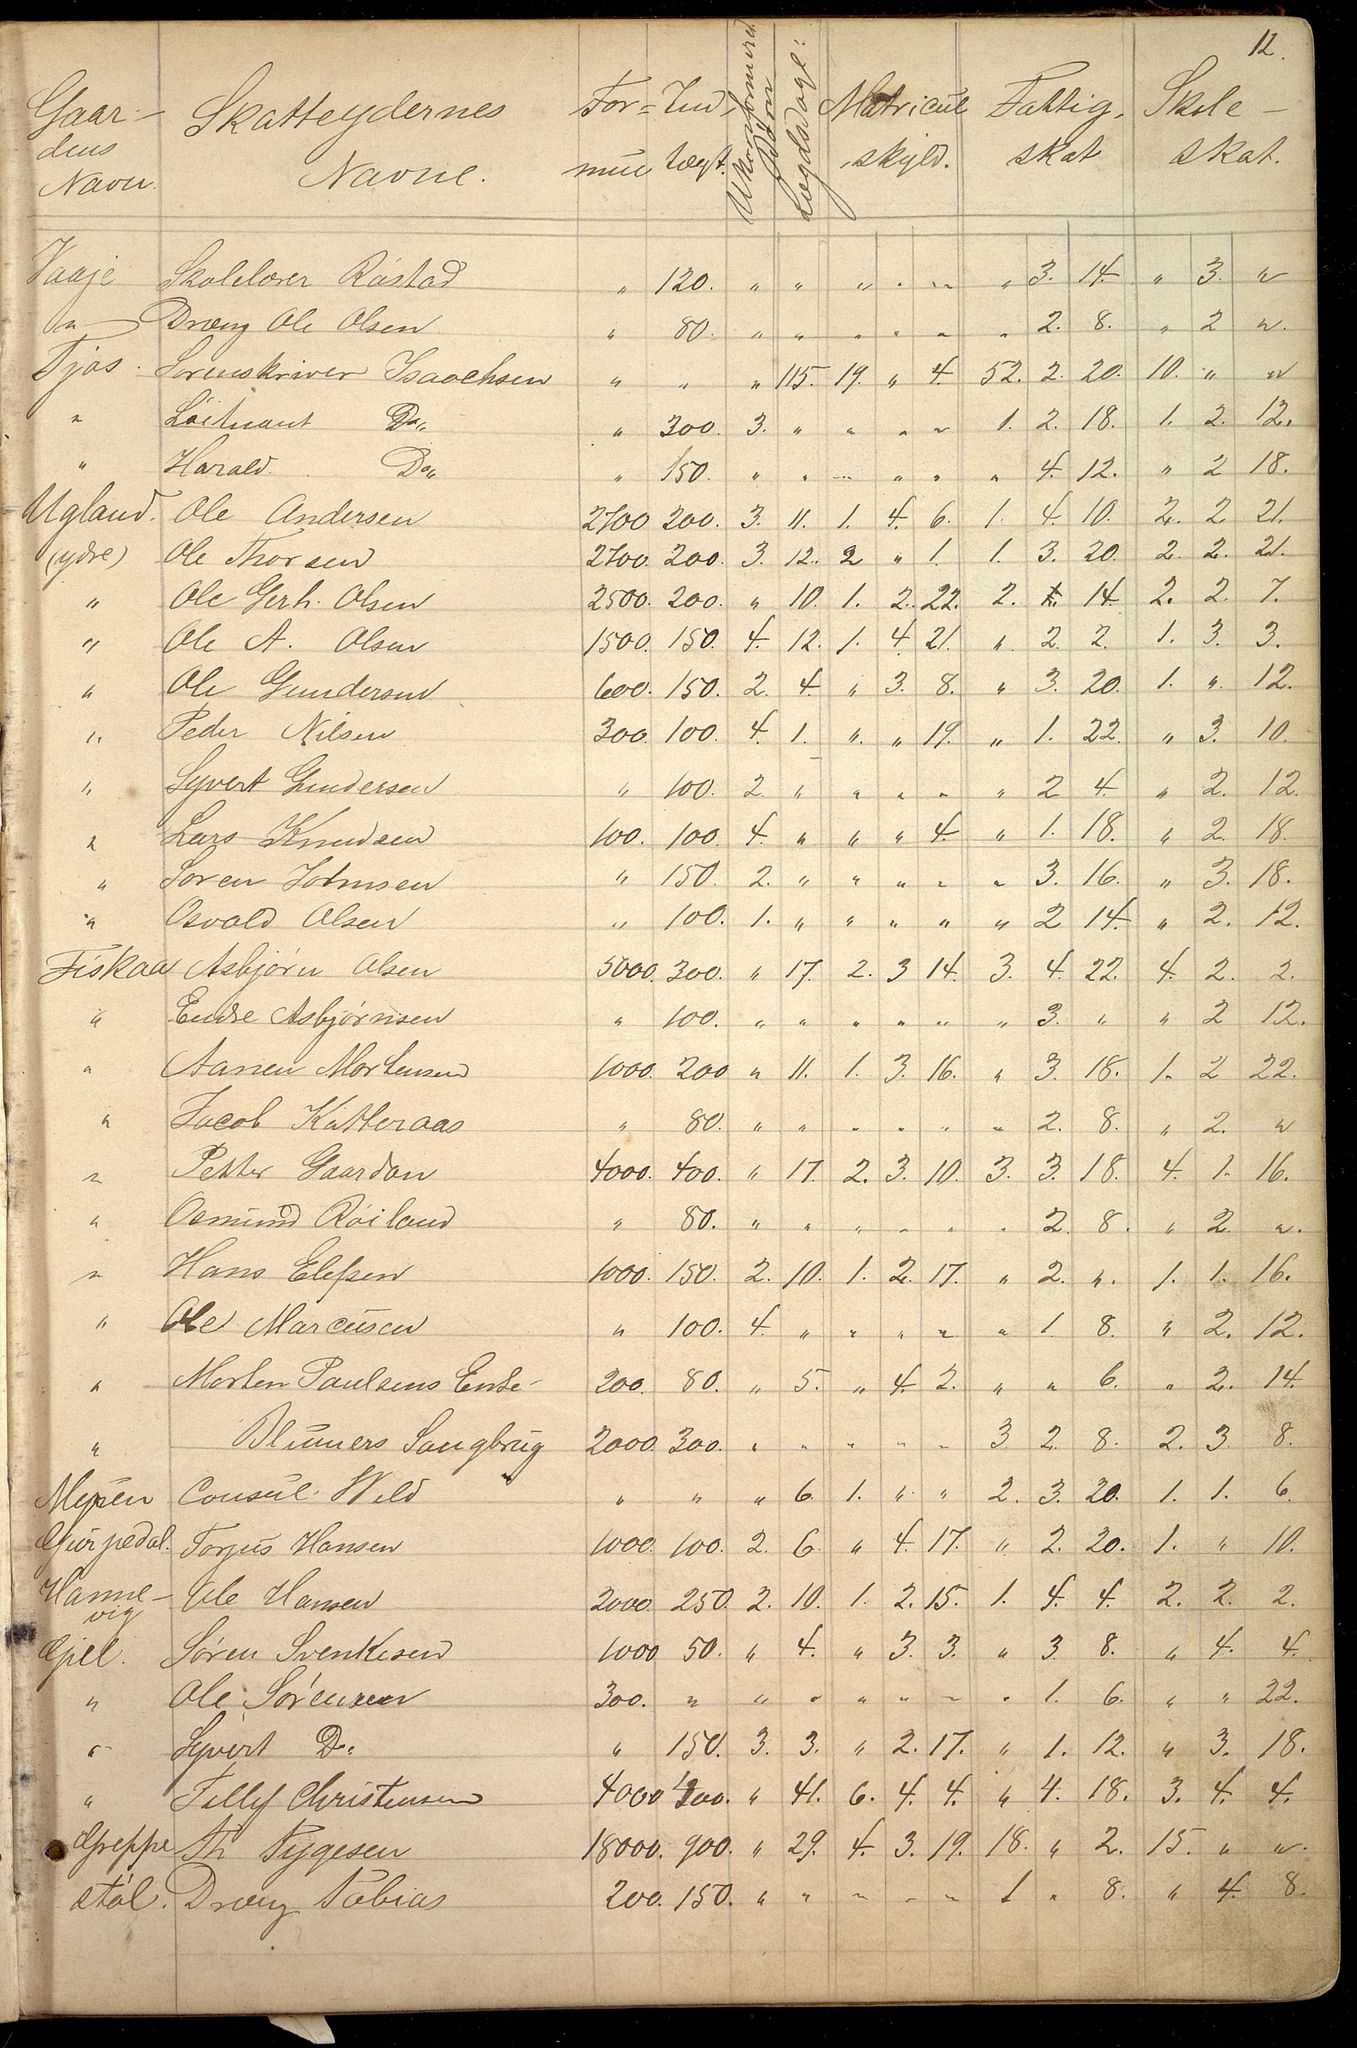 12.
Gaardens Navn. Skatteydernes Navne. Formue Indtægt. Ukonfirmered Børn Lægdsdage: Matricul skyld. Fattigskat Skoleskat.
Vaaje Skolelærer Röstad " 120. " " " " " " 3. 14. " 3. "
" Dræng Ole Olsen " 80. " " " " " " 2. 8. " 2 "
Tjøs. Sorenskriver Isaachsen " " " 115. 19. " 4. 52. 2. 20. 10. " "
" Löitnant Do. " 300. 3. " " " " 1. 2. 18. 1. 2. 12.
" Harald Do. " 150. " " " " " " 4. 12. " 2 18.
Ugland. Ole Andersen 2700 200. 3. 11. 1. 4. 6. 1. 4. 10. 2. 2 21.
(ydre) Ole Thorsen 2700. 200. 3. 12. 2 " 1. 1. 3. 20. 2. 2. 21.
" Ole Gerh. Olsen 2500. 200. " 10. 1. 2. 22. 2. 14. 2. 2. 7.
" Ole A. Olsen 1500. 150. 4. 12. 1. 4. 21. " 2. 2. 1. 3. 3.
" Ole Gundersen 600. 150. 2. 4. " 3. 8. " 3. 20. 1. " 12.
" Peder Nilsen 300. 100. 4. 1. " " 19. " 1. 22. " 3. 10.
" Syvert Gundersen " 100. 2. " " " " " 2 4. " 2. 12.
" Lars Knudsen 100. 100. 4. " " " 4. " 1. 18. " 2. 18.
" Soren Johnsen " 150. 2. " " " " " 3. 16. " 3. 18.
" Osvald Olsen " 100. 1. " " " " " 2 14. " 2. 12.
Fiskaa Asbjörn Olsen 5000. 300. " 17. 2. 3 14. 3. 4. 22. 4. 2. 2.
" Endre Asbjørnsen " 100. " " " " " " 3. " " 2 12.
" Aanen Mortensen 1000. 200 " 11. 1. 3. 16. " 3. 18. 1. 2 22.
" Jacob Katteraas " 80. " " " " " " 2. 8. " 2. "
" Petter Gaardan 4000. 400. " 17. 2. 3. 10. 3. 3. 18. 4. 1. 16.
" Osmund Röiland " 80. " " " " " " 2. 8. " 2. "
" Hans Elefsen 1000. 150. 2. 10. 1. 2. 17. " 2. " 1. 1. 16.
" Ole Marcusen " 100. 4. " " " " " 1. 8. " 2. 12.
" Morten Paulsens Enke 200. 80. " 5. " 4. 2. " " 6. " 2. 14.
" Blumers Saugbrug 2000. 300. " " " " " 3 2. 8. 2. 3. 8.
Consul Wild " " " 6. 1. " " 2. 3. 20. 1. 1. 6.
Torjus Hansen 1000. 100. 2. 6. " 4. 17. " 2. 20. 1. " 10.
Hannevig Ole Hansen 2000. 250. 2. 10. 1. 2. 15. 1. 4. 4. 2. 2. 2.
Gjel. Søren Svenkesen 1000 50. " 4. " 3. 3. " 3. 8. " 4. 4.
" Ole Sörensen 300. " " " " " " " 1. 6. " " 22.
" Syvert Do. " 150. 3. 3. " 2. 17. " 1. 12. " 3. 18.
" Tellef Christensen 4000 400. " 41. 6. 4. 4. " 4. 18. 3. 4. 4.
Greppe Th Tygesen 18000. 900. " 29. 4. 3. 19. 18. " 2. 15. " "
stöl. Dræng Tobias 200. 150. " " " " " 1 " 8. " 4. 8.